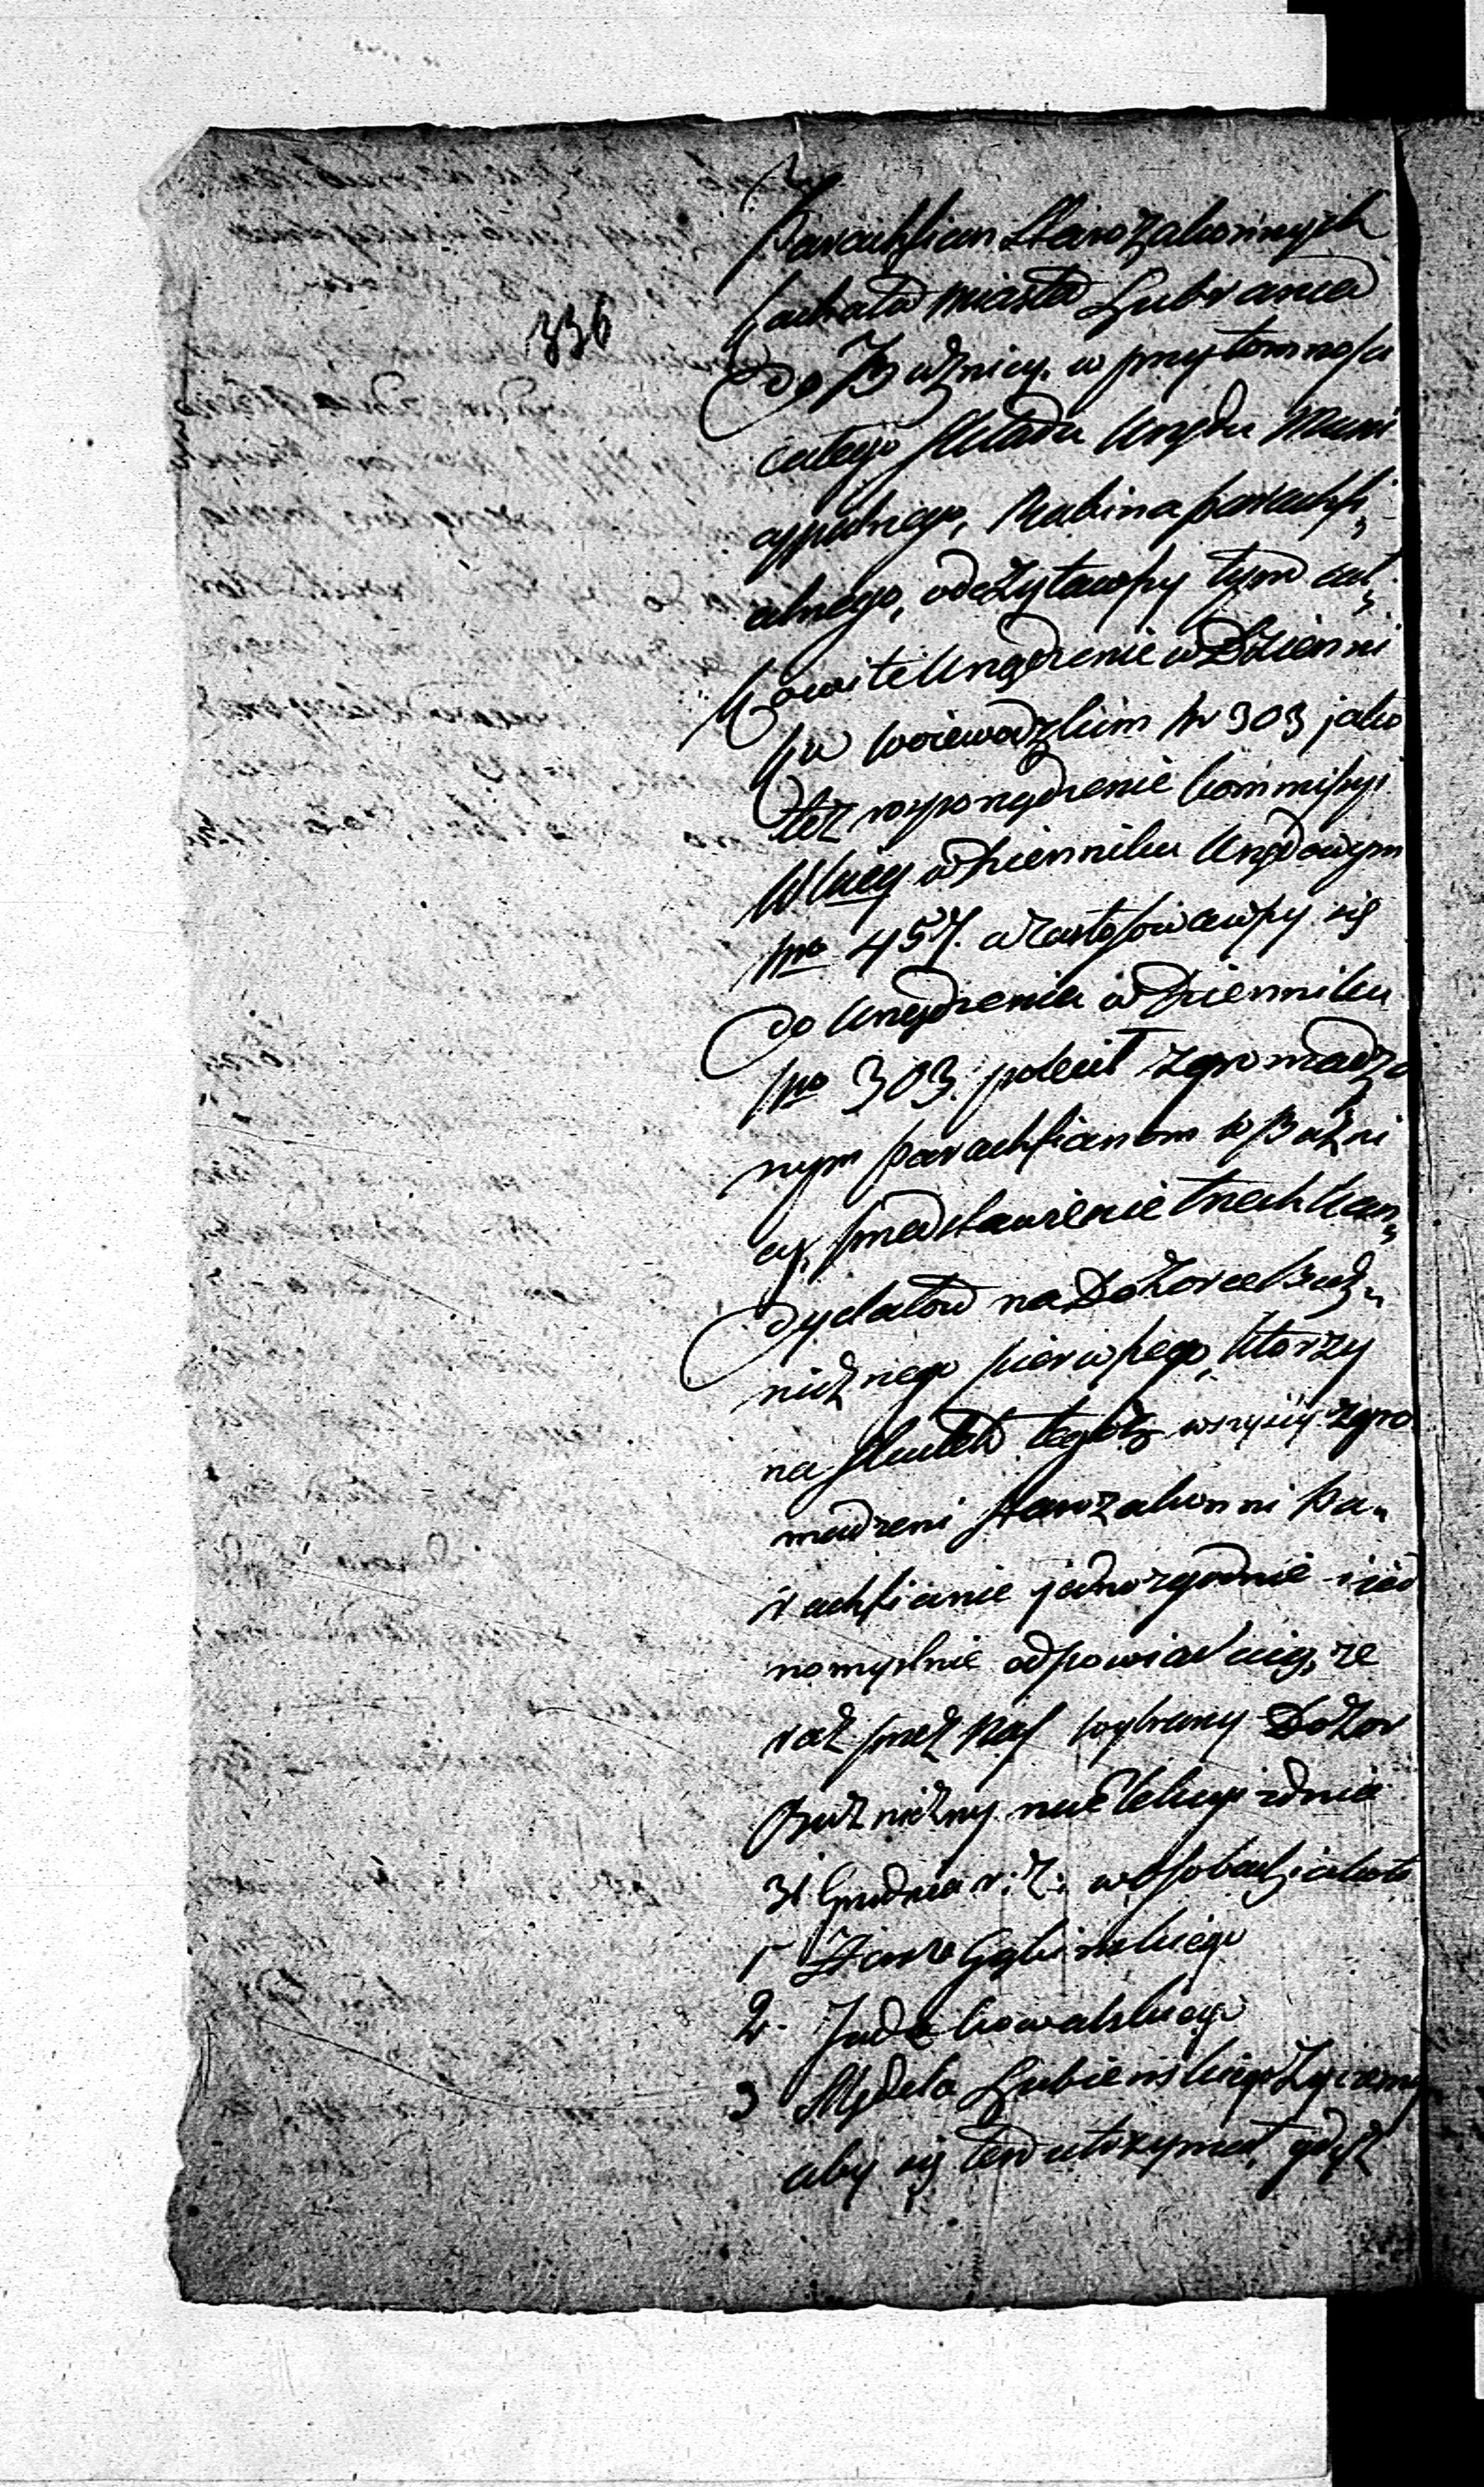 336
Parachfian Starozakonnych
kachału miasta Lubrania
do Bużnicy, w przytomności
całego składu Urzędu Muni
cypalnego, Rabina parachfi„
alnego, odczytawszy tym cał„
kowite Urządzenie w Dzienni
ku Woiewodzkim Nr 303 jako
też rozporządzenie Kommissyi
w Dzienniku Urzędowym
Nro 457. a zastosowawszy się
do Urządzenia w Dzienniku
Nro 303. polecił zgromadzo
nym parachfianom w Bużni
cy, przedstawienie trzech Kan„
dydatów na Dozorce Buż„
nicznego pierwszego, którzy
na skutek tegoż wszyscy zgro
madzeni starozakonni Pa„
rachfianie jednozgodnie i jed
nomyślnie odpowiadaią, że
raz przez Nas wybrany Dozor
Bużniczny na Elekcyi z dnia
31 Grudnia r: z: w osobach jakoto
1 Gąbinskiego
2. Juda Kowalskiego
3 Mędela Lubienskiego życzemy
aby się ten utrzymał, gdyż